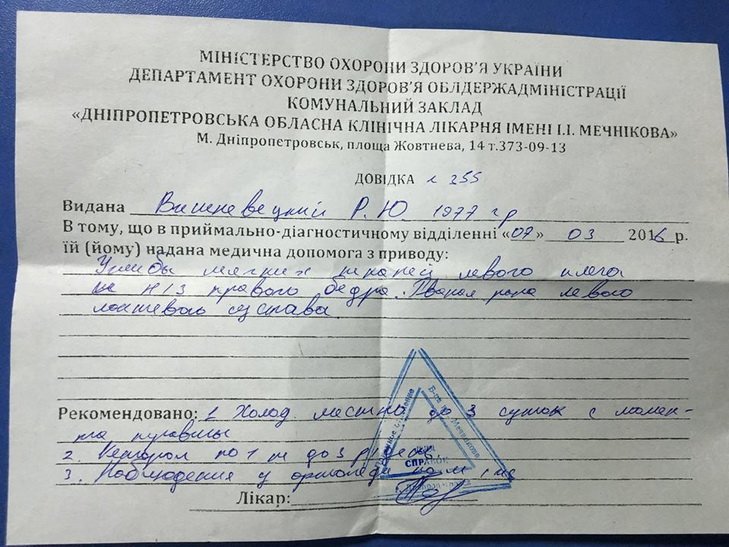 МІНІСТЕРСТВО ОХОРОНИ ЗДОРОВ'Я УКРАЇНИ
ДЕПАРТАМЕНТ ОХОРОНИ ЗДОРОВ'Я ОБЛДЕРЖАДМІНІСТРАЦІЇ
КОМУНАЛЬНИЙ ЗАКЛАД
«ДНІПРОПЕТРОВСЬКА ОБЛАСНА КЛІНІЧНА ЛІКАРНЯ ІМЕНІ І.І. МЕЧНІКОВА»
М. Дніпропетровськ, площа Жовтнева, 14 т.373-09-13
ДОВІДКА 255
Видана Вишневецкий Р.Ю 1977 гр
В тому, що в приймально-діагностичному відділенні «07» 03 2016 р.
їй (йому) надана медична допомога з приводу:
Ушибы мягких тканей левого плеча
н/з правого бедра. Рваная рана левого
локтевого сустава.
Рекомендовано: 1 Холод местно до 3 суток с момен-
та травмы
2. Кеторол по 1 до 3
3. Наблюдение у ортопеда по м
Лікар:
СПРАВОК